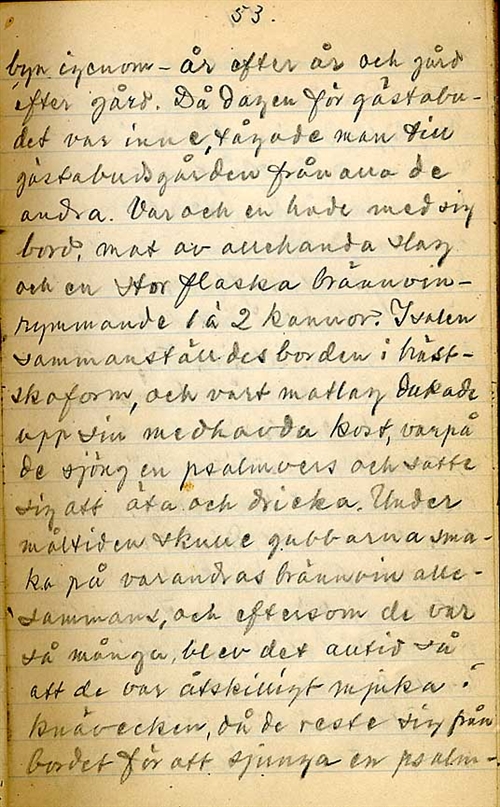 53.
byn igenom - år efter år och gård
efter gård. Då dagen för gästabu-
det var inne, tågade man till
gästabudsgården från alla de
andra. Var och en hade med sig
bord, mat av allehanda slag
och en stor flaska brännvin -
rymmande 1 à 2 kannor. I salen
sammanställdes borden i häst-
skoform, och vart matlag dukade
upp sin medhavda kost, varpå
de sjöng en psalmvers och satte
sig att äta och dricka. Under
måltiden skulle gubbarna sma-
ka på varandras brännvin alle-
sammans, och eftersom de var
så många, blev det alltid så
att de var åtskilligt mjuka i
knävecken, då de reste sig från
bordet för att sjunga en psalm-